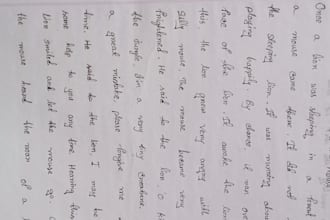 Once a lion was sleeping in a forest
a mouse came there. It did not
the sleeping lion. It was running about
playing happily. By chance it ran over
face of the lion. It awoke the lion
this the lion grew very angry with
silly mouse. The mouse became very
frightened. He said to the lion, O king
the jungle. I'm a very tiny creature. I
a great mistake, please forgive me
time. He said to the lion, I may be
some help to you any time. Hearing this
lion smiled and let the mouse go.
the mouse heard the roar of a